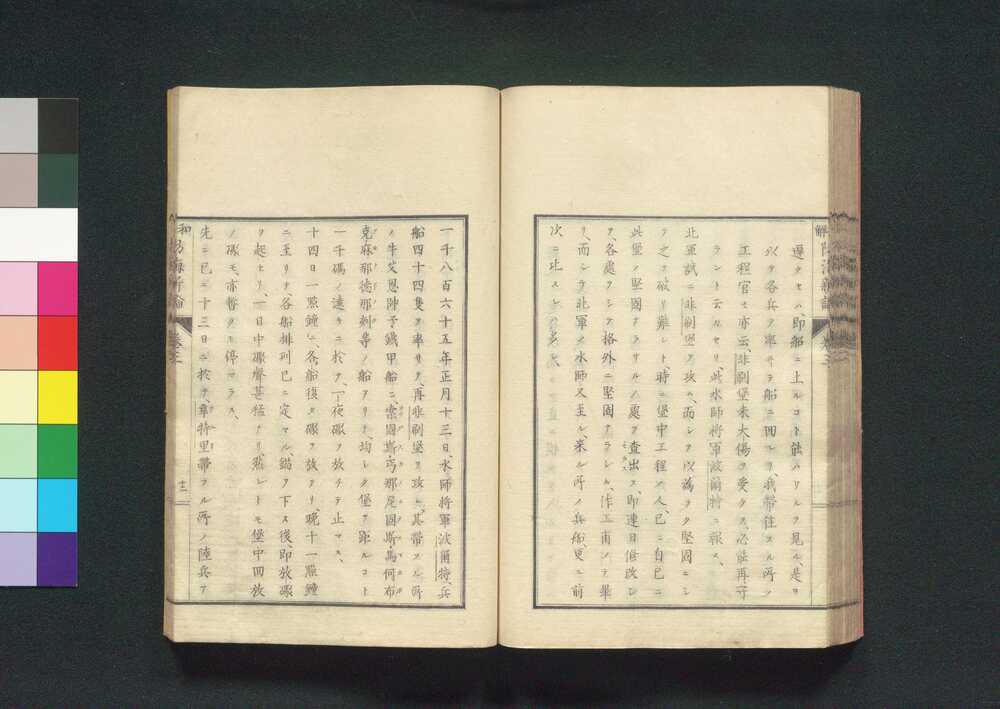 遲クセハ、即船ニ上ルコト能ハサルヲ見ル、是ヲ
以テ各兵ヲ率ヰテ船ニ回レリ、我帶往スル所ノ
工程官モ亦云、非刷堡未大傷ヲ受ケス、必能再守
ラント云ルセリ、此水師將軍波爾特ニ報ス、
北軍試ニ非刷堡ヲ攻ム、而シテ以為ラク堅固ニシ
テ之ヲ破リ難シト、時ニ堡中工程ノ人、已ニ自己ニ
此堡ノ堅固ナラサルノ處ヲ查出ス、即連日修改シ
テ各處ヲシテ格外ニ堅固ナラシム、作工甫メテ畢
リ、而シテ北軍ノ水師又至ル、来ル所ノ兵船、更ニ前
次ニ比スレハ多大
一千八百六十五年正月十三日、水師將軍波爾特、兵
船四十四隻ヲ率ヰテ、再非刷堡ヲ攻ム、其帶フル所
ノ牛艾恩陣予鐵甲船ニ、索固斯、丐那尼固斯、馬何布
克、麻那德那剌尋ノ船アリテ、均シク堡ヲ距ルコト
一千碼ノ遠キニ於テ、一夜礮ヲ放チテ止マス、
十四日一點鐘ニ、各船復タ礮ヲ放テリ、晚十一點鐘
ニ至リテ各船排列已ニ定マル、錨ヲ下ス後、即放礮
ヲ起セリ、一日中礮聲甚猛ナリ、然レトモ堡中回放
ノ礮モ、亦暫クモ停マラス、
先ニ已ニ十三日ニ於テ、韋特里帶フル所ノ陸兵ヲ
十二